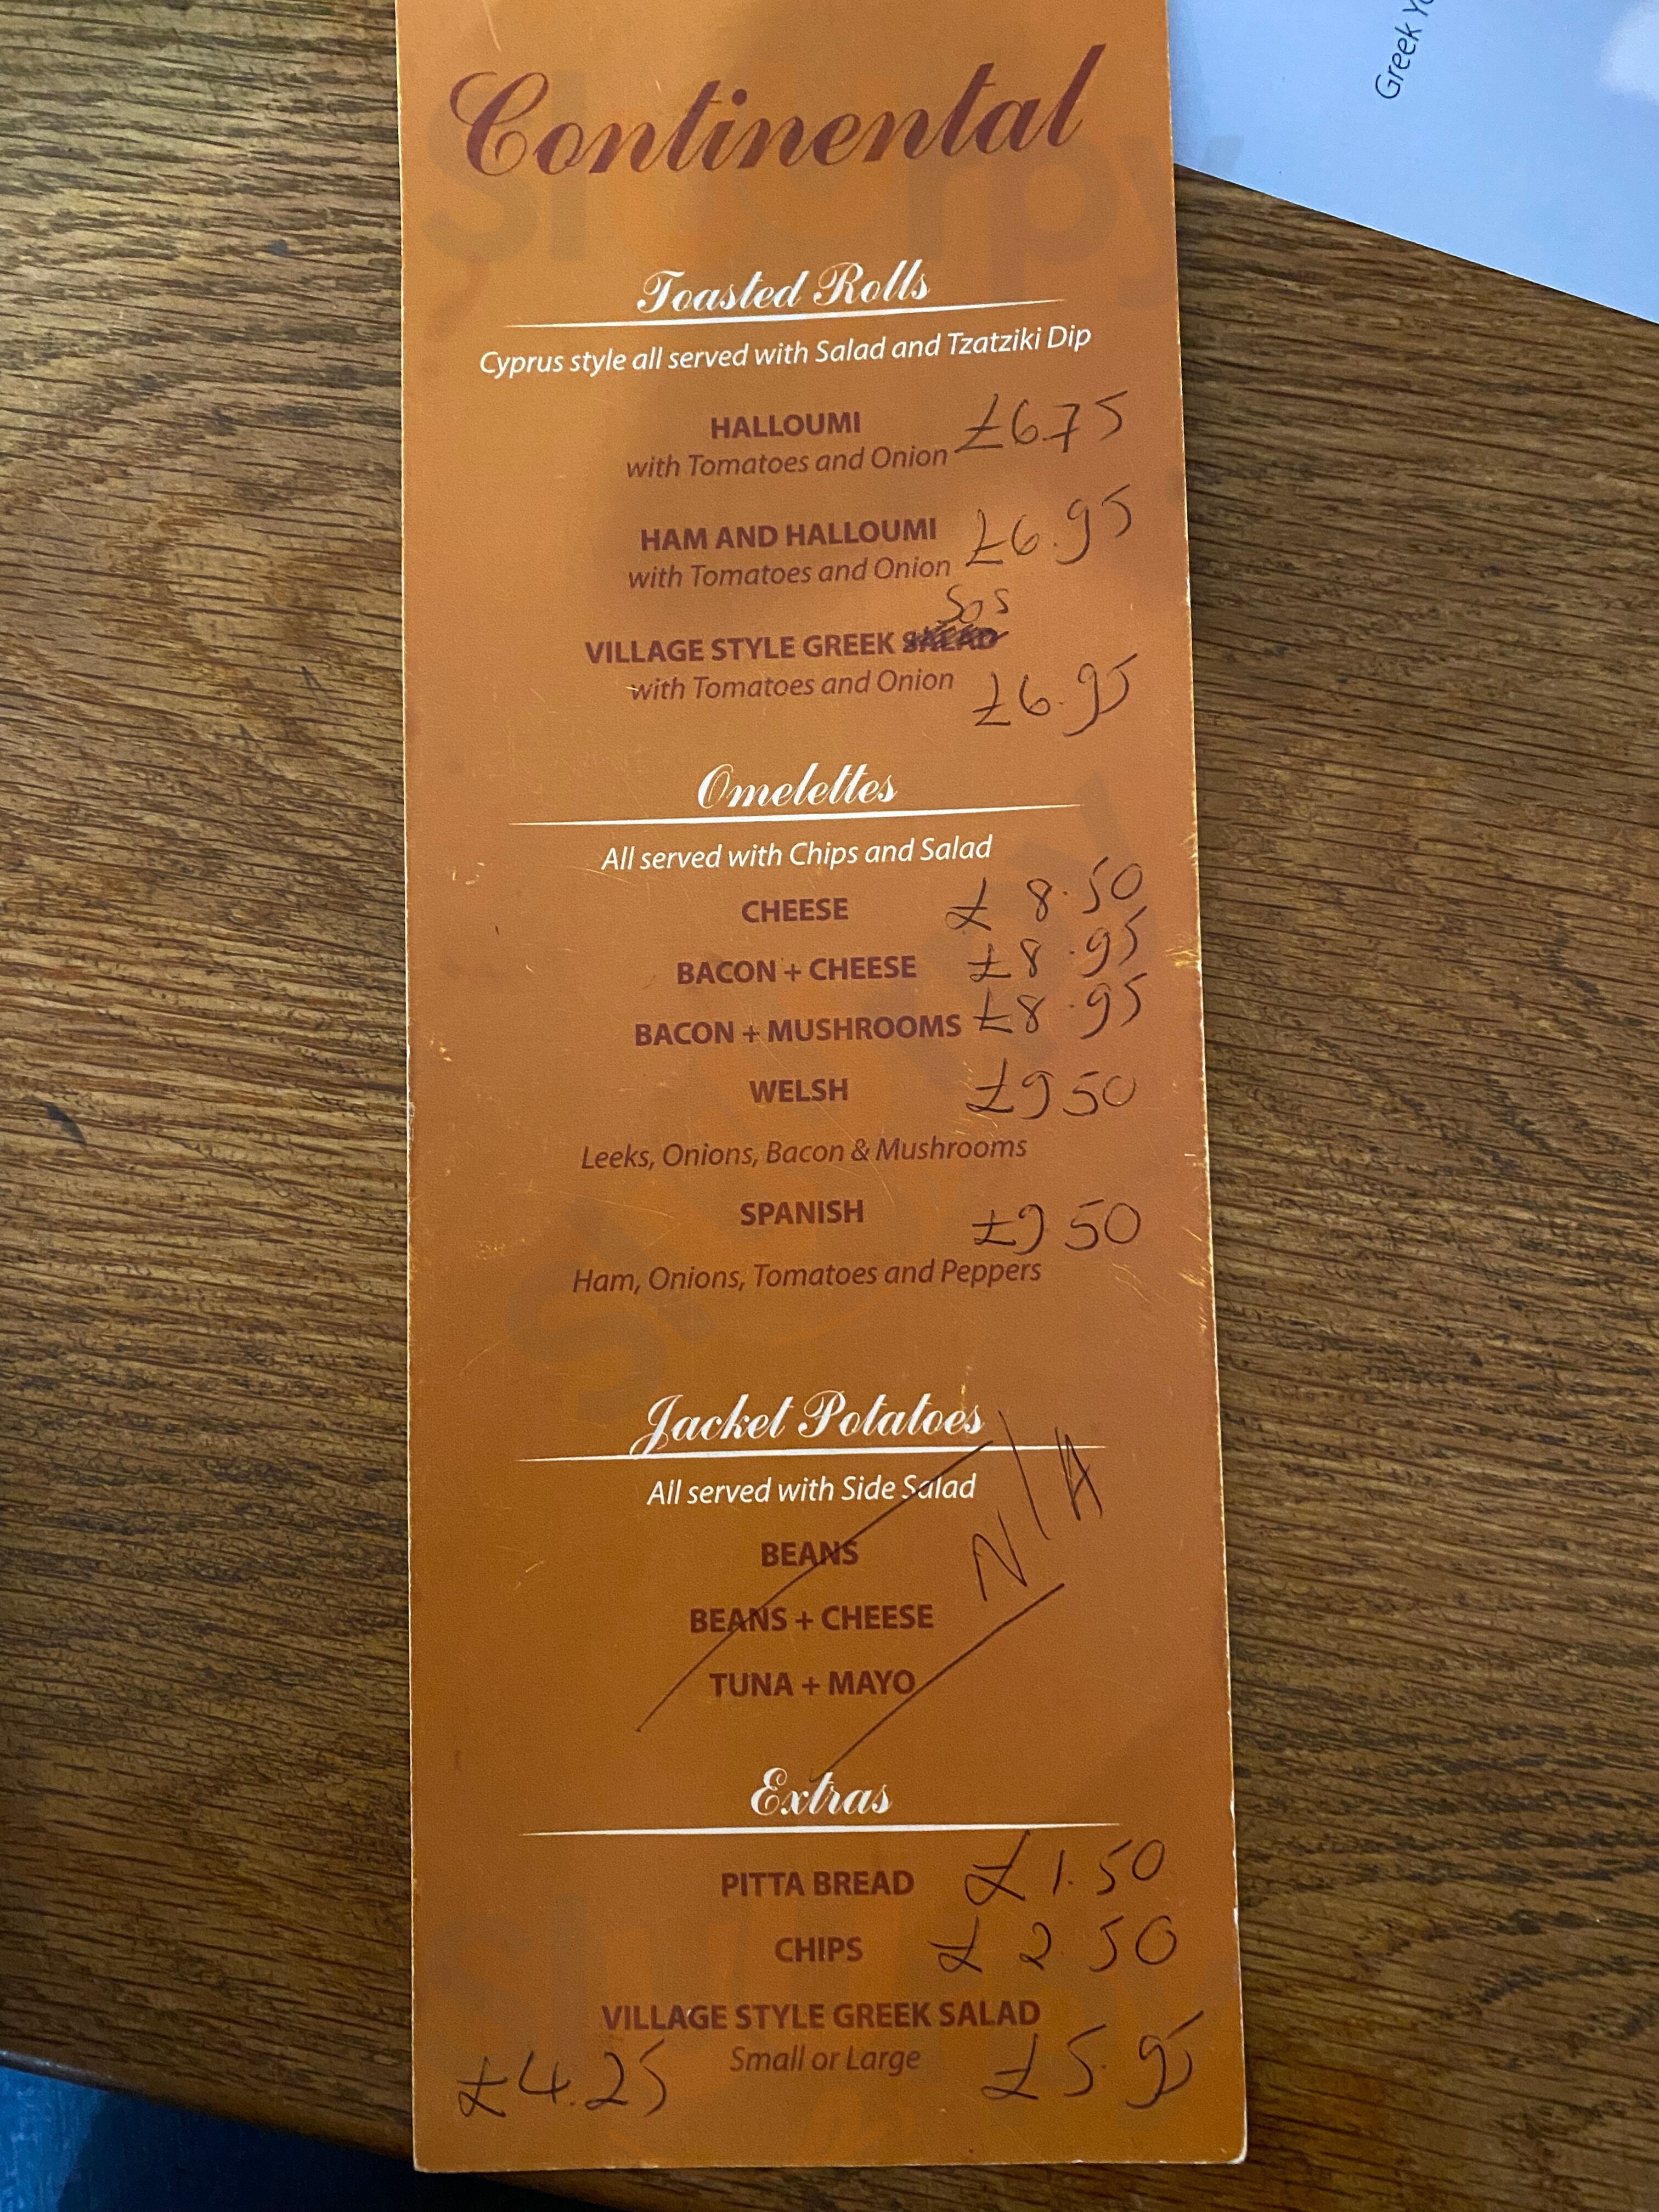 Greek Yo
Continental
Toasted Rolls
Cyprus style all served with Salad and Tzatziki Dip
HALLOUMI £6.75
with Tomatoes and Onion
HAM AND HALLOUMI £6.95
with Tomatoes and Onion
SOS
VILLAGE STYLE GREEK SALAD
with Tomatoes and Onion £6.95
Omelettes
All served with Chips and Salad
CHEESE £8.50
BACON + CHEESE £8.95
BACON + MUSHROOMS £8.95
WELSH £9 50
Leeks, Onions, Bacon & Mushrooms
SPANISH £9 50
Ham, Onions, Tomatoes and Peppers
Jacket Potatoes
All served with Side Salad
N/A
BEANS
BEANS + CHEESE
TUNA + MAYO
Extras
PITTA BREAD £1.50
CHIPS £2 50
VILLAGE STYLE GREEK SALAD
£4.25 Small or Large £5.95